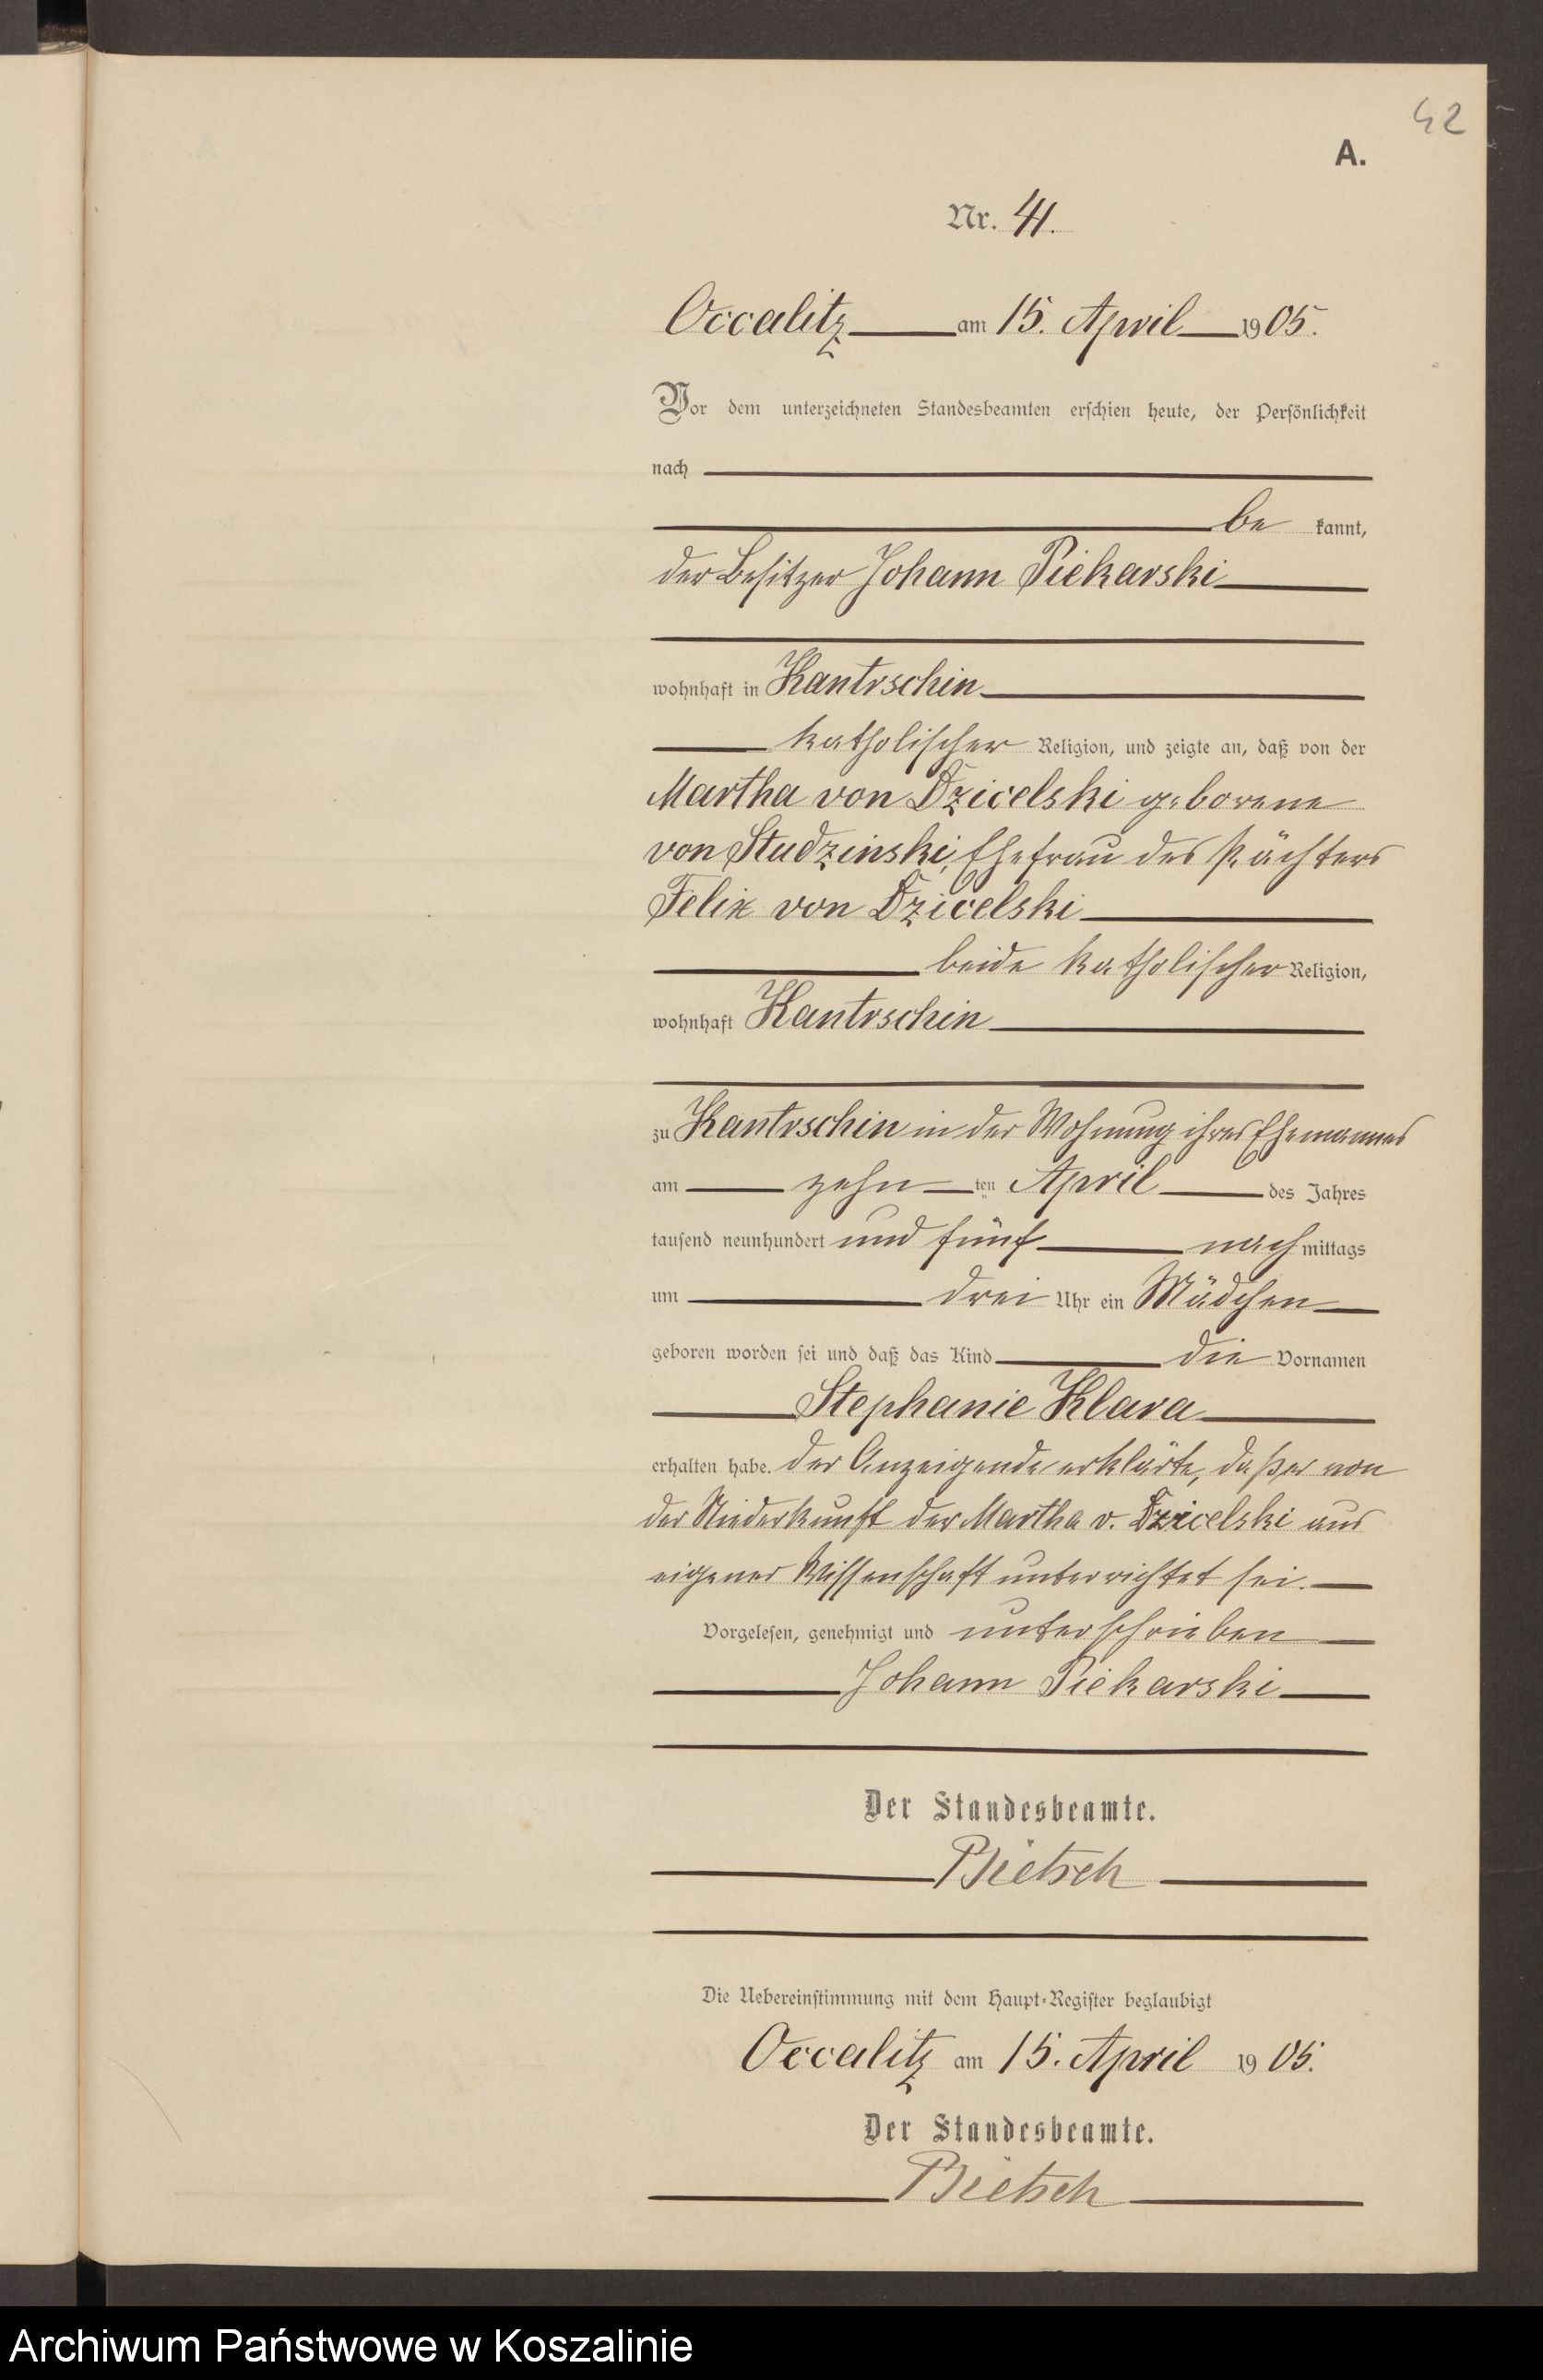 42
A.
Nr. 41.
Occalitz am 15. April 1905.
Vor dem unterzeichneten Standesbeamten erschien heute, der Persönlichkeit
nach
be kannt,
der Besitzer Johann Piekarski
wohnhaft in Kantrschin
katholischer Religion, und zeigte an, daß von der
Martha von Dzicelski geborene
von Studzinski, Ehefrau des Pächters
Felix von Dzicelski
beide katholischer Religion,
wohnhaft Kantrschin
zu Kantrschin in der Wohnung ihres Ehemannes
am zehn ten April des Jahres
tausend neunhundert und fünf nach mittags
um drei Uhr ein Mädchen
geboren worden sei und daß das Kind die Vornamen
Stephanie Klara
erhalten habe. Der Anzeigende erklärte, daß er von
der Niederkunft der Martha v. Dzicelski aus
eigener Wissenschaft unterrichtet sei.
Vorgelesen, genehmigt und unterschrieben
Johann Piekarski
Der Standesbeamte.
Bietsch
Die Uebereinstimmung mit dem Haupt-Register beglaubigt
Occalitz am 15. April 1905.
Der Standesbeamte.
Bietsch
Archiwum Państwowe w Koszalinie